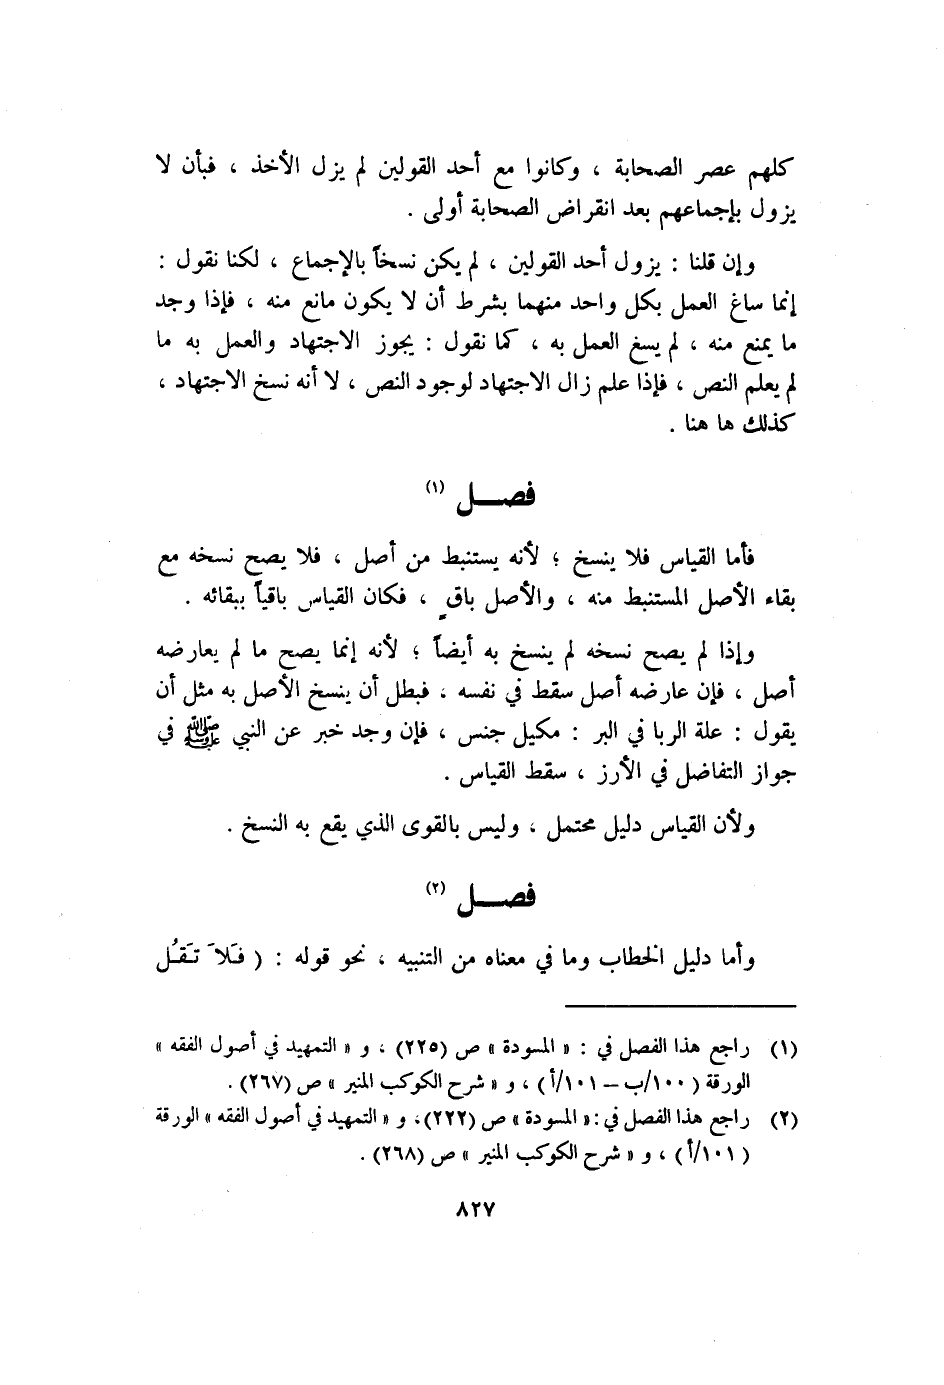 كلهم عصر الصحابة ، وكانوا مع أحد القولين لم يزل الأخذ ، فبأن لا
يزول بإجماعهم بعد انقراض الصحابة أولى .
وإن قلنا : يزول أحد القولين ، لم يكن نسخاً بالإجماع ، لكنا نقول :
إنما ساغ العمل بكل واحد منهما بشرط أن لا يكون مانع منه ، فإذا وجد
ما يمنع منه ، لم يسغ العمل به ، كما نقول : يجوز الاجتهاد والعمل به ما
لم يعلم النص ، فإذا علم زال الاجتهاد لوجود النص ، لا أنه نسخ الاجتهاد ،
كذلك ها هنا .
فصـــل (١)
فأما القياس فلا ينسخ ؛ لأنه يستنبط من أصل ، فلا يصح نسخه مع
بقاء الأصل المستنبط منه ، والأصل باقٍ ، فكان القياس باقياً ببقائه .
وإذا لم يصح نسخه لم ينسخ به أيضاً ؛ لأنه إنما يصح ما لم يعارضه
أصل ، فإن عارضه أصل سقط في نفسه ، فبطل أن ينسخ الأصل به مثل أن
يقول : علة الربا في البر : مكيل جنس ، فإن وجد خبر عن النبي ﷺ في
جواز التفاضل في الأرز ، سقط القياس .
ولأن القياس دليل محتمل ، وليس بالقوى الذي يقع به النسخ .
فصـــل (٢)
وأما دليل الخطاب وما في معناه من التنبيه ، نحو قوله : ( فَلاَ تَقُل
(١) راجع هذا الفصل في : « المسودة » ص (٢٢٥) ، و « التمهيد في أصول الفقه »
الورقة ( ١٠٠/ب – ١٠١/أ ) ، و « شرح الكوكب المنير » ص (٢٦٧) .
(٢) راجع هذا الفصل في : « المسودة » ص (٢٢٢)، و « التمهيد في أصول الفقه » الورقة
( ١٠١/أ ) ، و « شرح الكوكب المنير » ص (٢٦٨) .
٨٢٧